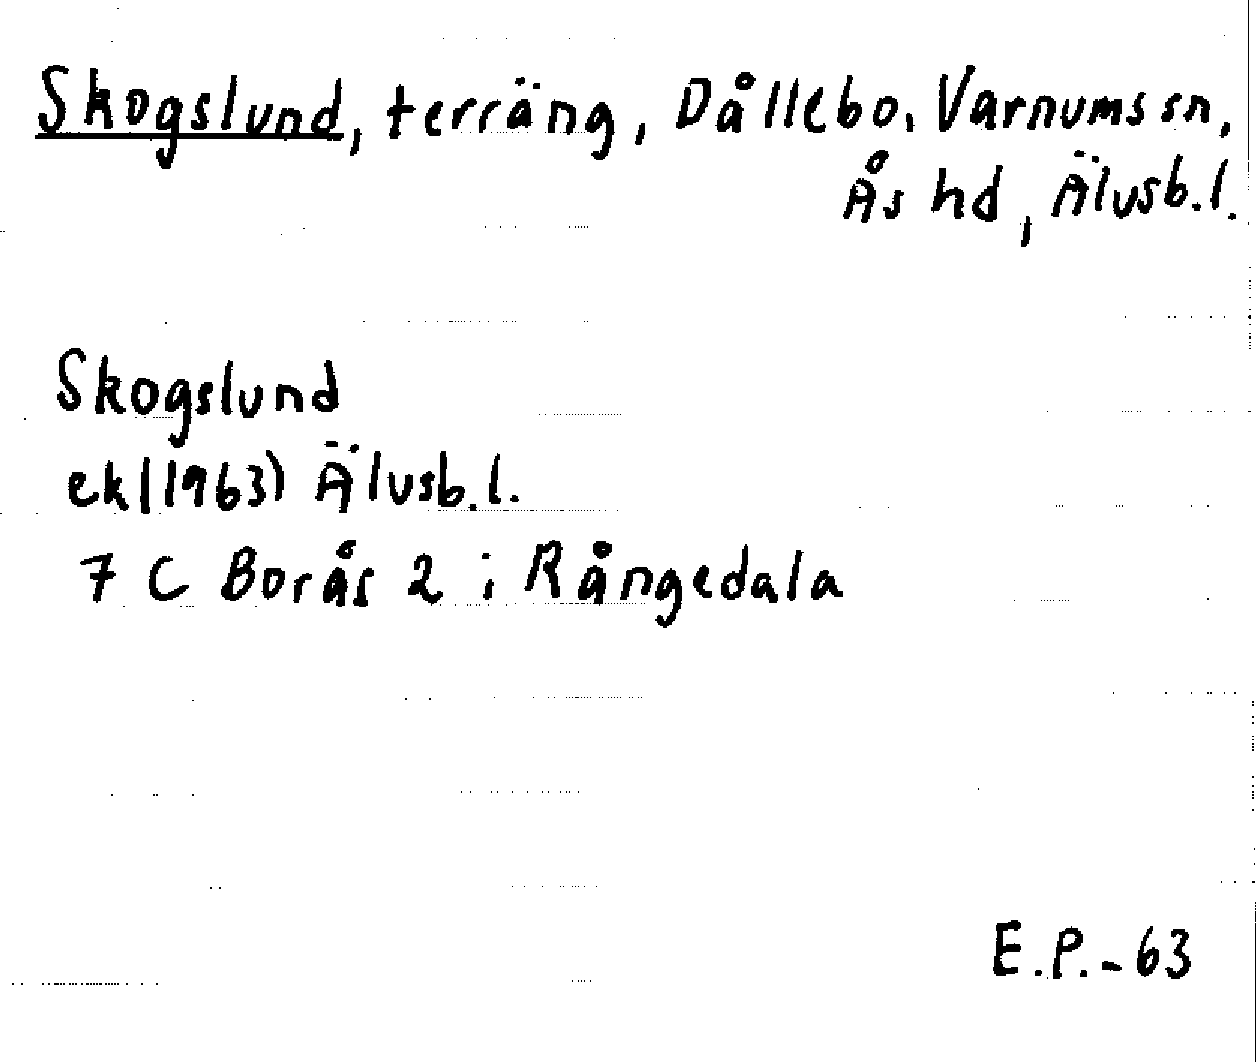 Skogslund, terräng, Dållebo, Varnums sn,
Ås hd, Älvsb.l.
Skogslund
ek (1963) Älvsb.l.
7 C Borås 2 i Rångedala
E.P.-63